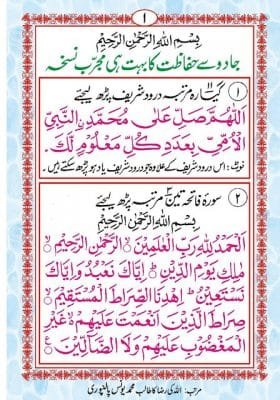 ۱
بِسْمِ اللّٰهِ الرَّحْمٰنِ الرَّحِيْمِ
جادو سے حفاظت کا بہت ہی مجرّب نسخہ
۱ گیارہ مرتبہ درود شریف پڑھ لیجئے
اَللّٰهُمَّ صَلِّ عَلٰى مُحَمَّدِنِ النَّبِيِّ
الْاُمِّيِّ بِعَدَدِ كُلِّ مَعْلُوْمٍ لَّكَ.
نوٹ: اس درود شریف کے علاوہ جو درود شریف یاد ہو پڑھ سکتے ہیں۔
۲ سورہ فاتحہ تین مرتبہ پڑھ لیجئے
بِسْمِ اللّٰهِ الرَّحْمٰنِ الرَّحِيْمِ
اَلْحَمْدُ لِلّٰهِ رَبِّ الْعٰلَمِيْنَ ۙ الرَّحْمٰنِ الرَّحِيْمِ ۙ
مٰلِكِ يَوْمِ الدِّيْنِ ۗ اِيَّاكَ نَعْبُدُ وَاِيَّاكَ
نَسْتَعِيْنُ ۗ اِهْدِنَا الصِّرَاطَ الْمُسْتَقِيْمَ ۙ
صِرَاطَ الَّذِيْنَ اَنْعَمْتَ عَلَيْهِمْ ۙ غَيْرِ
الْمَغْضُوْبِ عَلَيْهِمْ وَلَا الضَّآلِّيْنَ
مرتب: اللہ کی رضا کا طالب محمد یونس پالنپوری